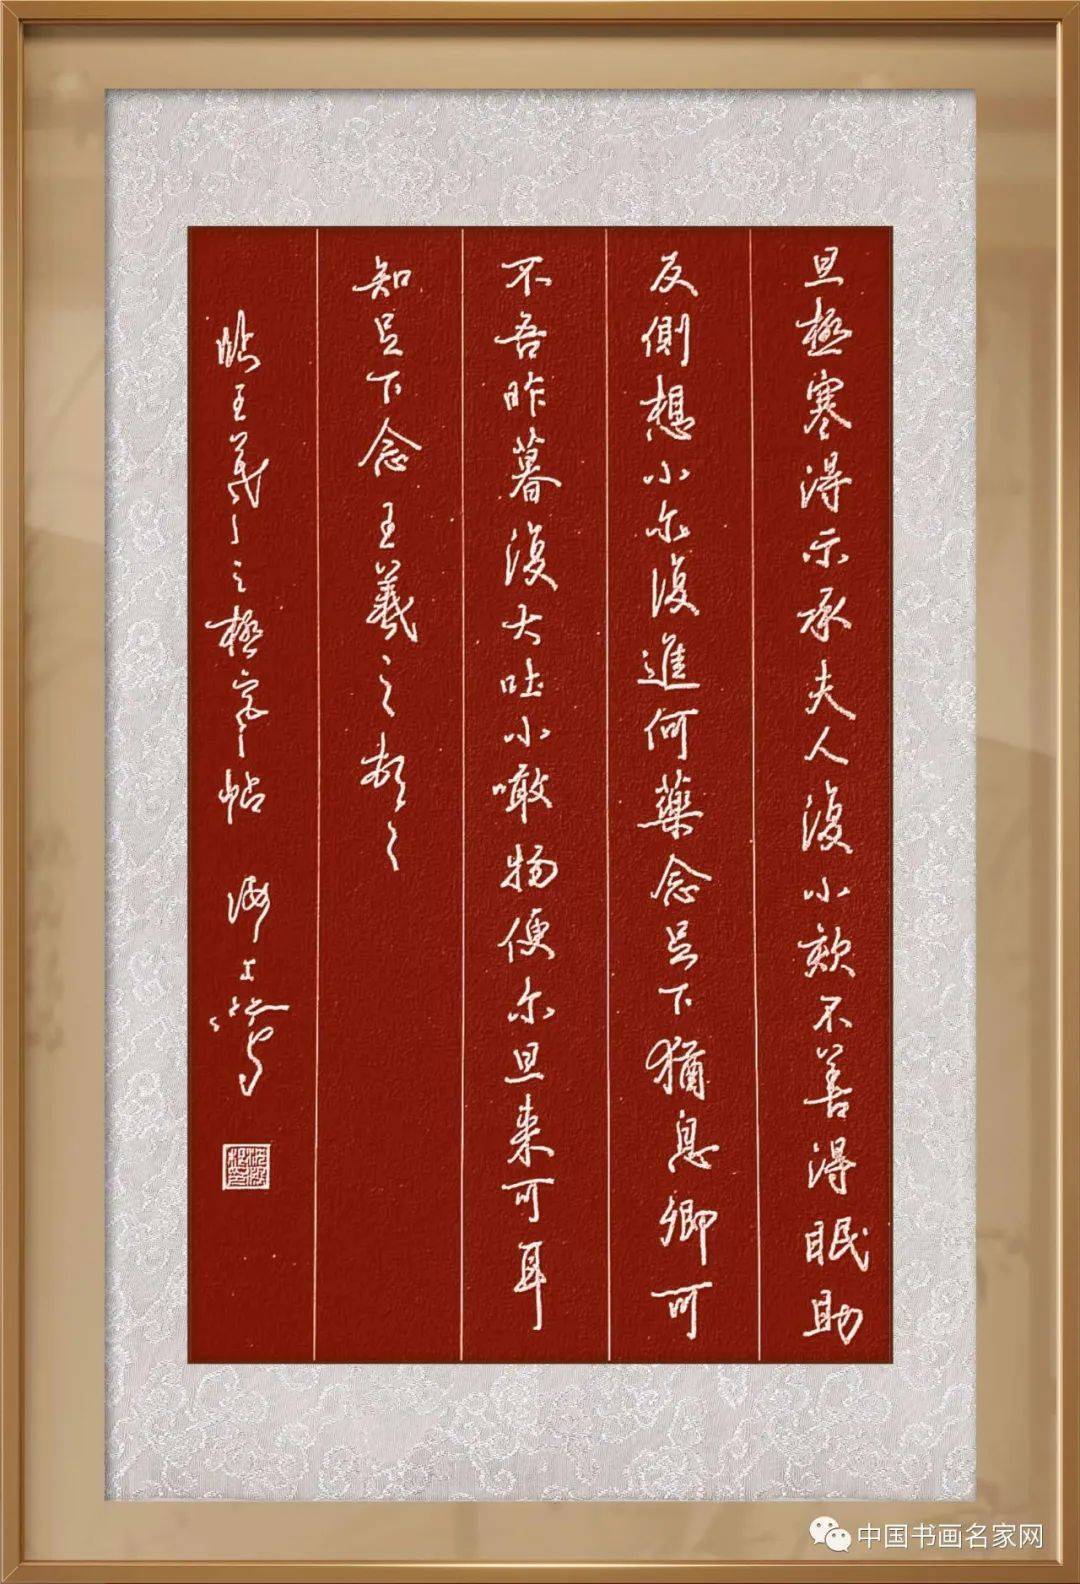 旦極寒得示承夫人復小欬不善得眠助
反側想小尔復進何藥念足下猶息卿可
不吾昨暮復大吐小噉物便尔旦来可耳
知足下念王羲之頓々
临王羲之之極寒帖
中国书画名家网